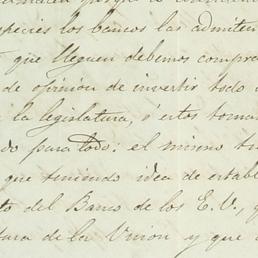 especies los bancos las admiten
que lleguen debemos compra
de opinion de invertir todo
la legislatura, ó estos toma
do para todo: el mismo
que teniendo idea de establ
to del Banco de los E. U.,
tura de la Union y que